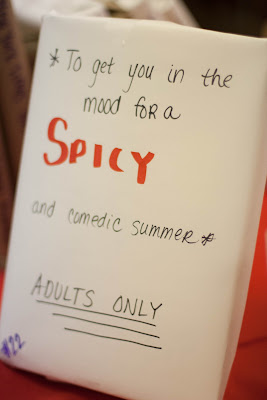 *To get you in the
mood foR a
SPICY
and comedic summer*
ADULTS ONLY
#22